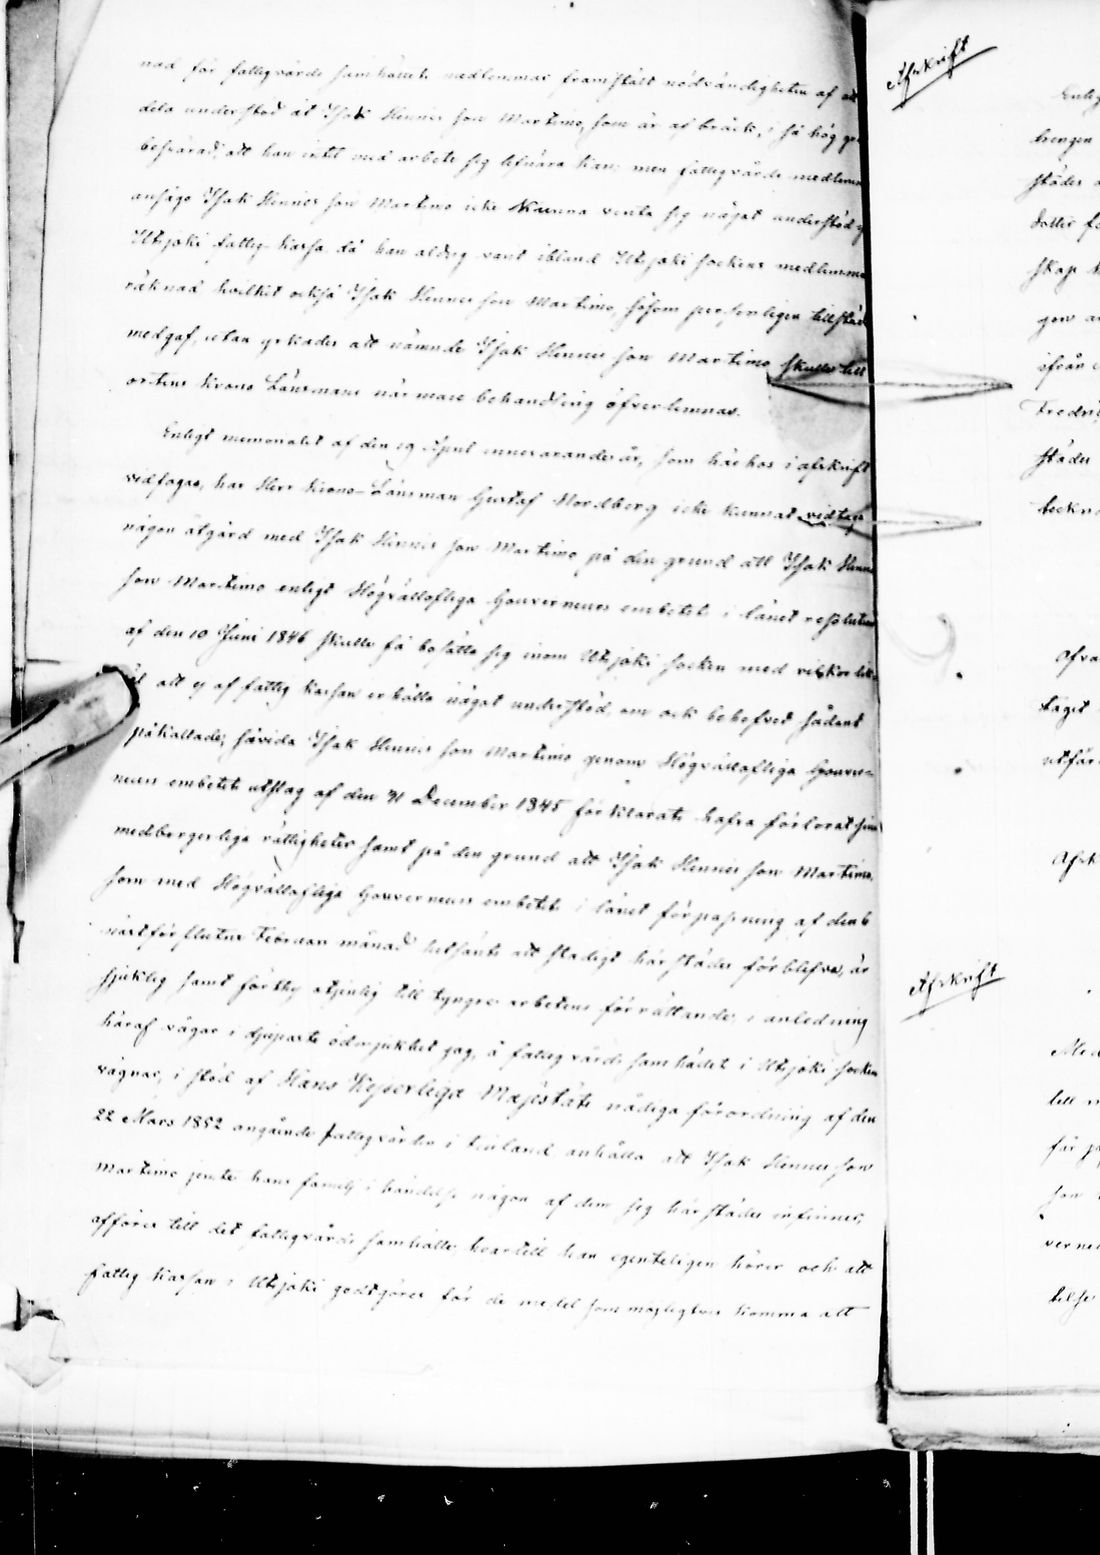 nad för fattigvårds samhällets medlemmar framstält nödvändigheten af att
dela understöd åt Isak Hennes son Martimo, som är af bråck, i så hög gra
besvärad, att han intet med arbete sig lifnära kan; men fattigvårds medlemm
ansågo Isak Hennes son Martimo icke kunna vänta sig något understöd
Utsjoki fattig-kassa då han aldrig varit ibland Utsjoki sockens medlemmar
räknad hvilket också Isak Hennes son Martimo, såsom personligen tillstäd
medgaf, utan yrkades att nämnde Isak Hennes son Martimo skulle till
ortens Krono Länsmans närmare behandling öfverlemnas.
Enligt memorialet af den 19 April innevarande år, som här hos i afskrift
vidfogas, har Herr Krono-Länsman Gustaf Nordberg icke kunnat vidtaga
någon åtgärd med Isak Hennes son Martimo på den grund att Isak Henne
son Martimo enligt Högvällofliga Gouverneurs embetets i länet resolution
af den 10 Juni 1846 skulle få bosätta sig inom Utsjoki socken med vilkor
att ej af fattig kassan erhålla något understöd, om ock behofvet sådant
påkallade; såvida Isak Hennes son Martimo genom Högvällofliga Gouver-
neurs embetets utslag af den 31 December 1845 förklarats hafva förlorat sina
medborgerliga rättigheter samt på den grund att Isak Hennes son Martimo,
som med Högvällofliga Gouverneurs embetets i länet förpassning af den 6
nästförflutne Februari månad hitsänts att stadigt härstädes förblifva, är
sjuklig samt förthy otjenlig till tyngre arbetens förrättande; i anledning
häraf vågar i djupaste ödmjukhet jag, å fattigvårds samhället i Utsjoki socken
vägnar, i stöd af Hans Kejserliga Majestäts nådiga förordning af den
22 Mars 1852 angående fattigvården i Finland anhålla att Isak Hennes son
Martimo jemte hans familj i händelse någon af dem sig här städes infinner,
afföres till det fattigvårds samhälle hvartill han egenteligen hörer och att
fattig kassan i Utsjoki godtgöres för de medel som möjligtvis komma att
Afskrift
Enlig
städes
skap
ifrån
Fredri
städes
Ofva
taget
utfär
Afsk
Afskrift
Med
till
för
son
verne